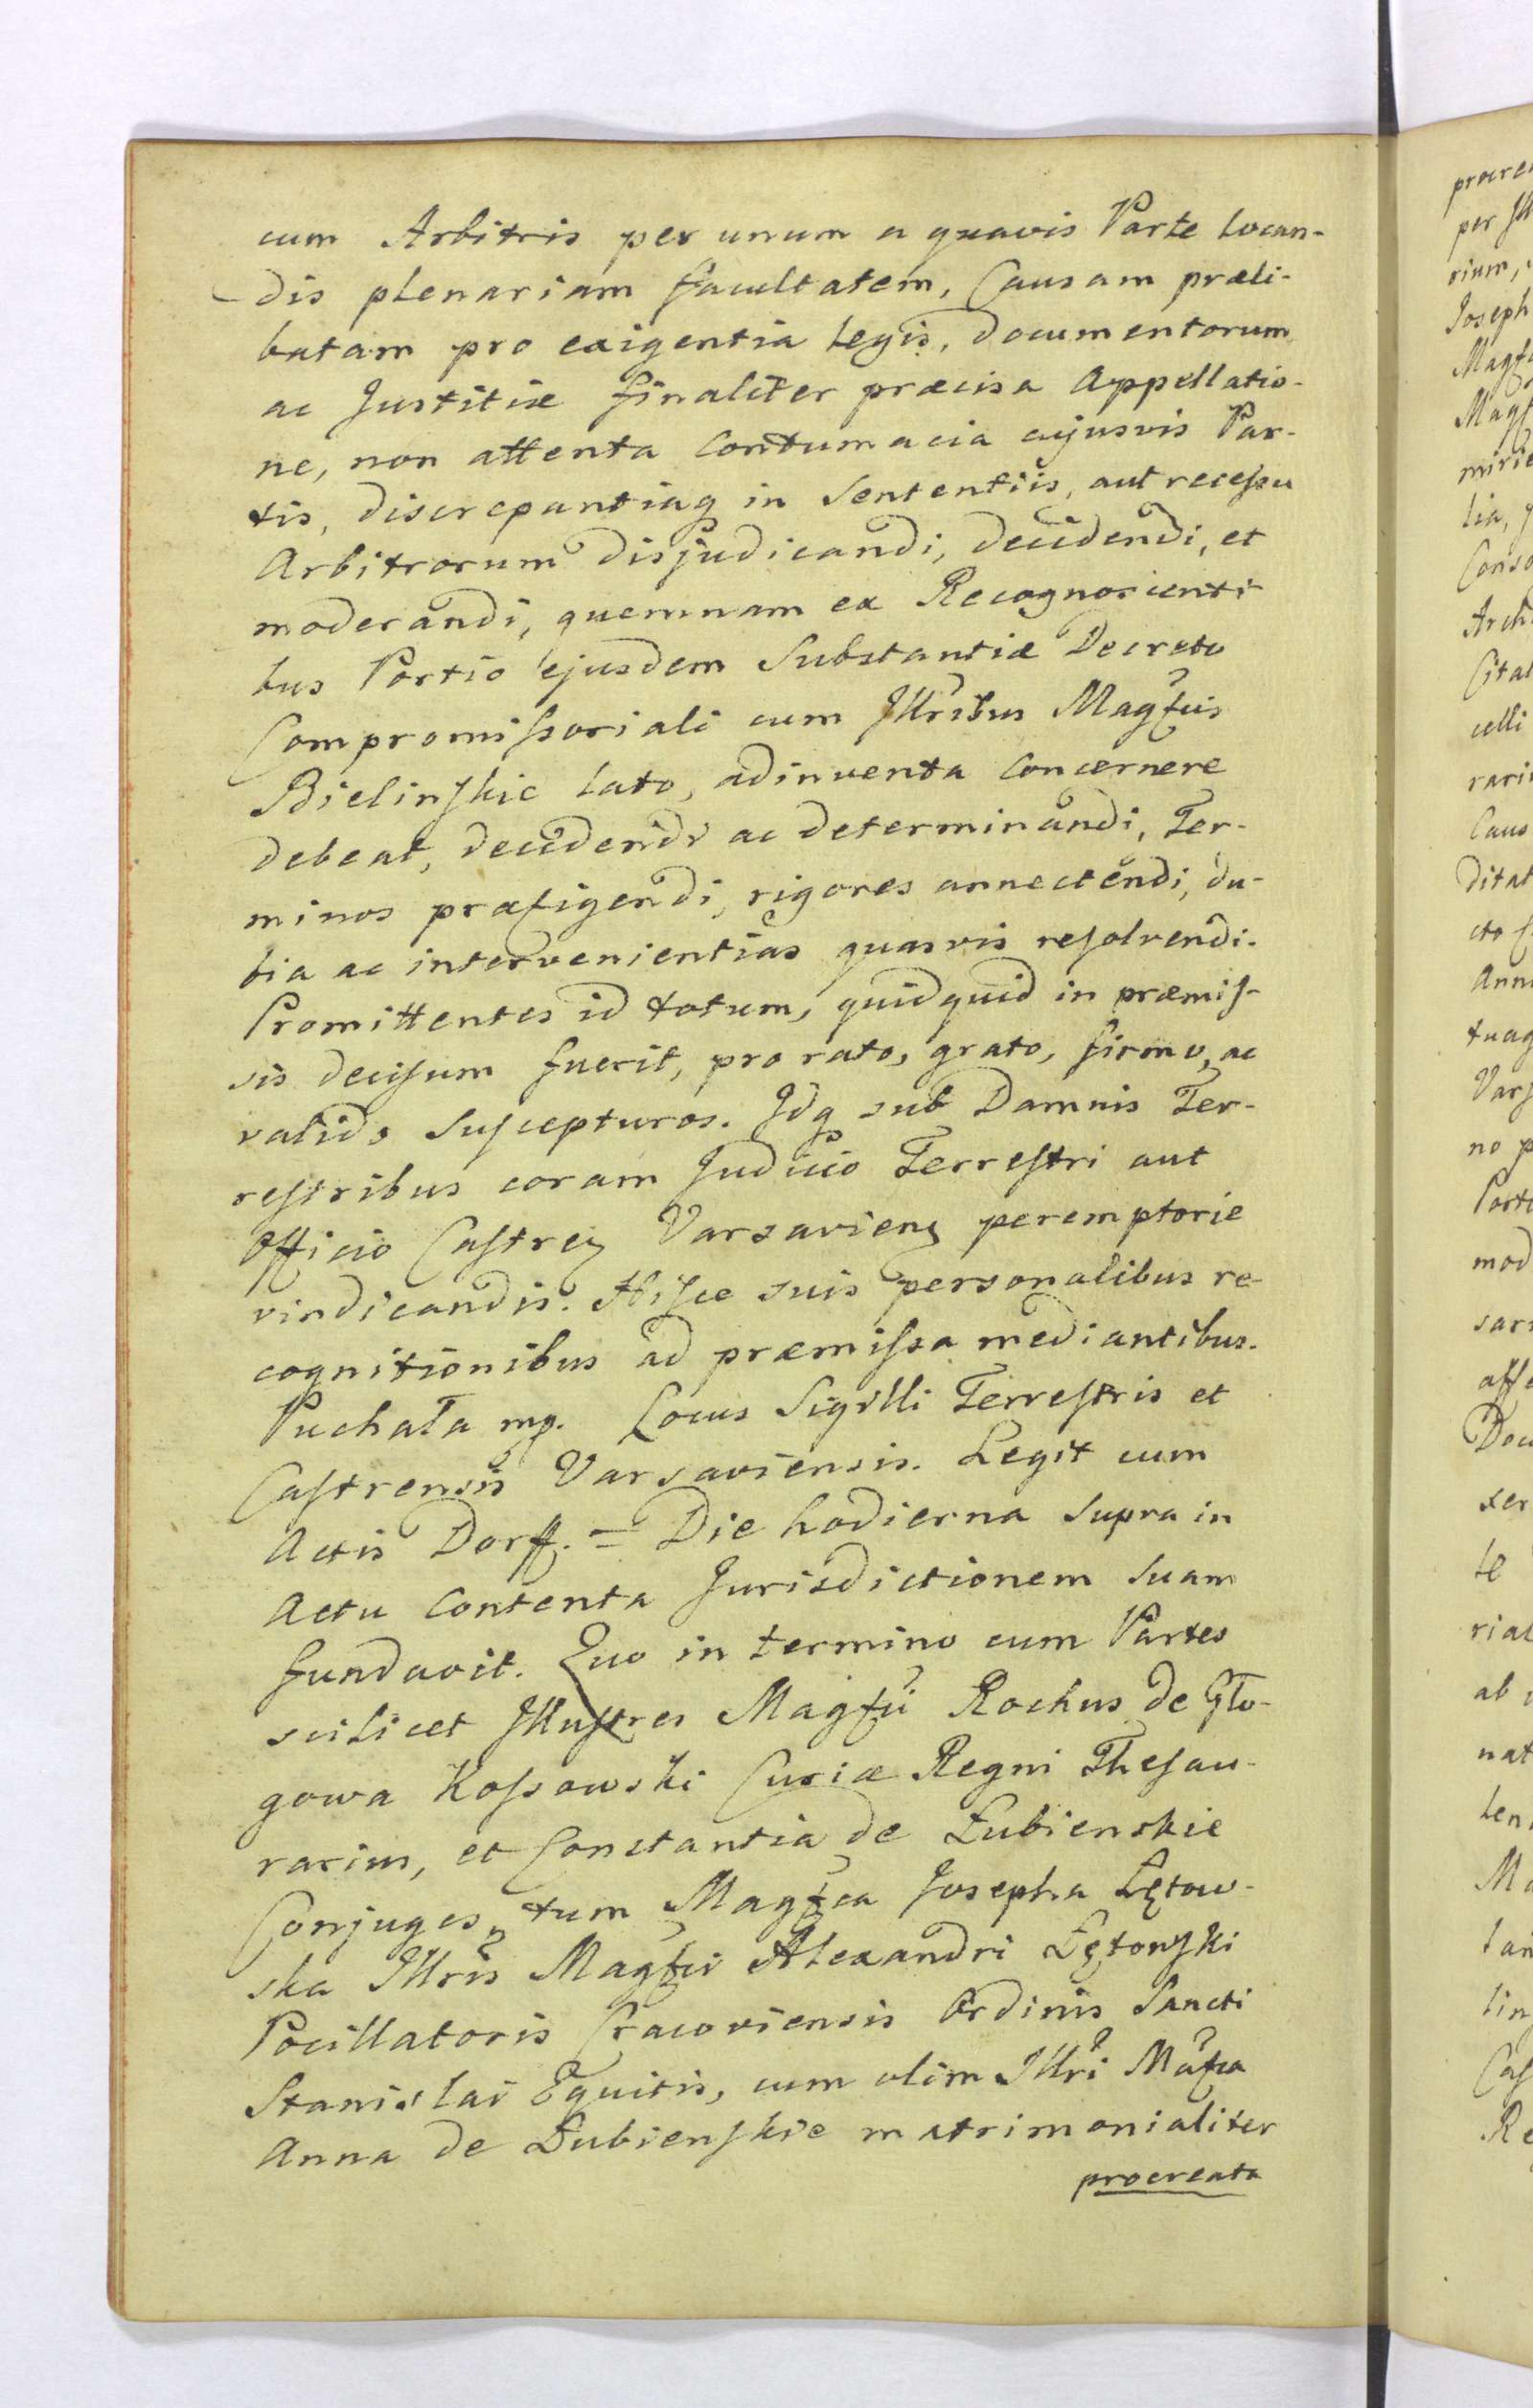 cum Arbitris per unum a quavis Parte locan-
dis plenariam facultatem, Causam præli-
batam pro exigentia legis, documentorum
ac Justitiæ finaliter præcisa Appellatio-
ne, non attenta Contumacia cujusvis Par-
tis, discrepantiaq in Sententiis, aut recessu
Arbitrorum disjudicandi, decidendi, et
moderandi, quemnam ex Recognoscenti
bus Portio ejusdem Substantiæ Decreto
Compromissoriali cum Illribus Magfcis
Bielinskie lato, adinventa Concernere
debeat, decidendi ac determinandi, Ter-
minos præfigendi, rigores annectendi, du-
bia ac intervenientias quasvis resolvendi.
Promittentes id totum, quidquid in præmis-
sis decisum fuerit, pro rato, grato, firmo, ac
valido Suscepturos. Idq sub Damnis Ter-
restribus coram Judicio Terrestri aut
Officio Castren Varsavien peremptorie
vindicandis. Hisce suis personalibus re
cognitionibus ad præmissa mediantibus.
Puchała mp. Locus Sigilli Terrestris et
Castrensis Varsaviensis. Legit cum
Actis Dorff. = Die hodierna Supra in
Actu Contenta Jurisdictionem Suam
fundavit. Quo in termino cum Partes
scilicet Illustres Magfci Rochus de Gło-
gowa Kossowski Curiæ Regni Thesau-
rarius, et Constantia de Łubienskie
Conjuges, tum Magfca Josepha Łętow-
ska Illris Magfci Alexandri Łętowski
Pocillatoris Cracoviensis Ordinis Sancti
Stanislai Equitis, cum olim Illri Mafca
Anna de Łubienskie matrimonialiter
procreata